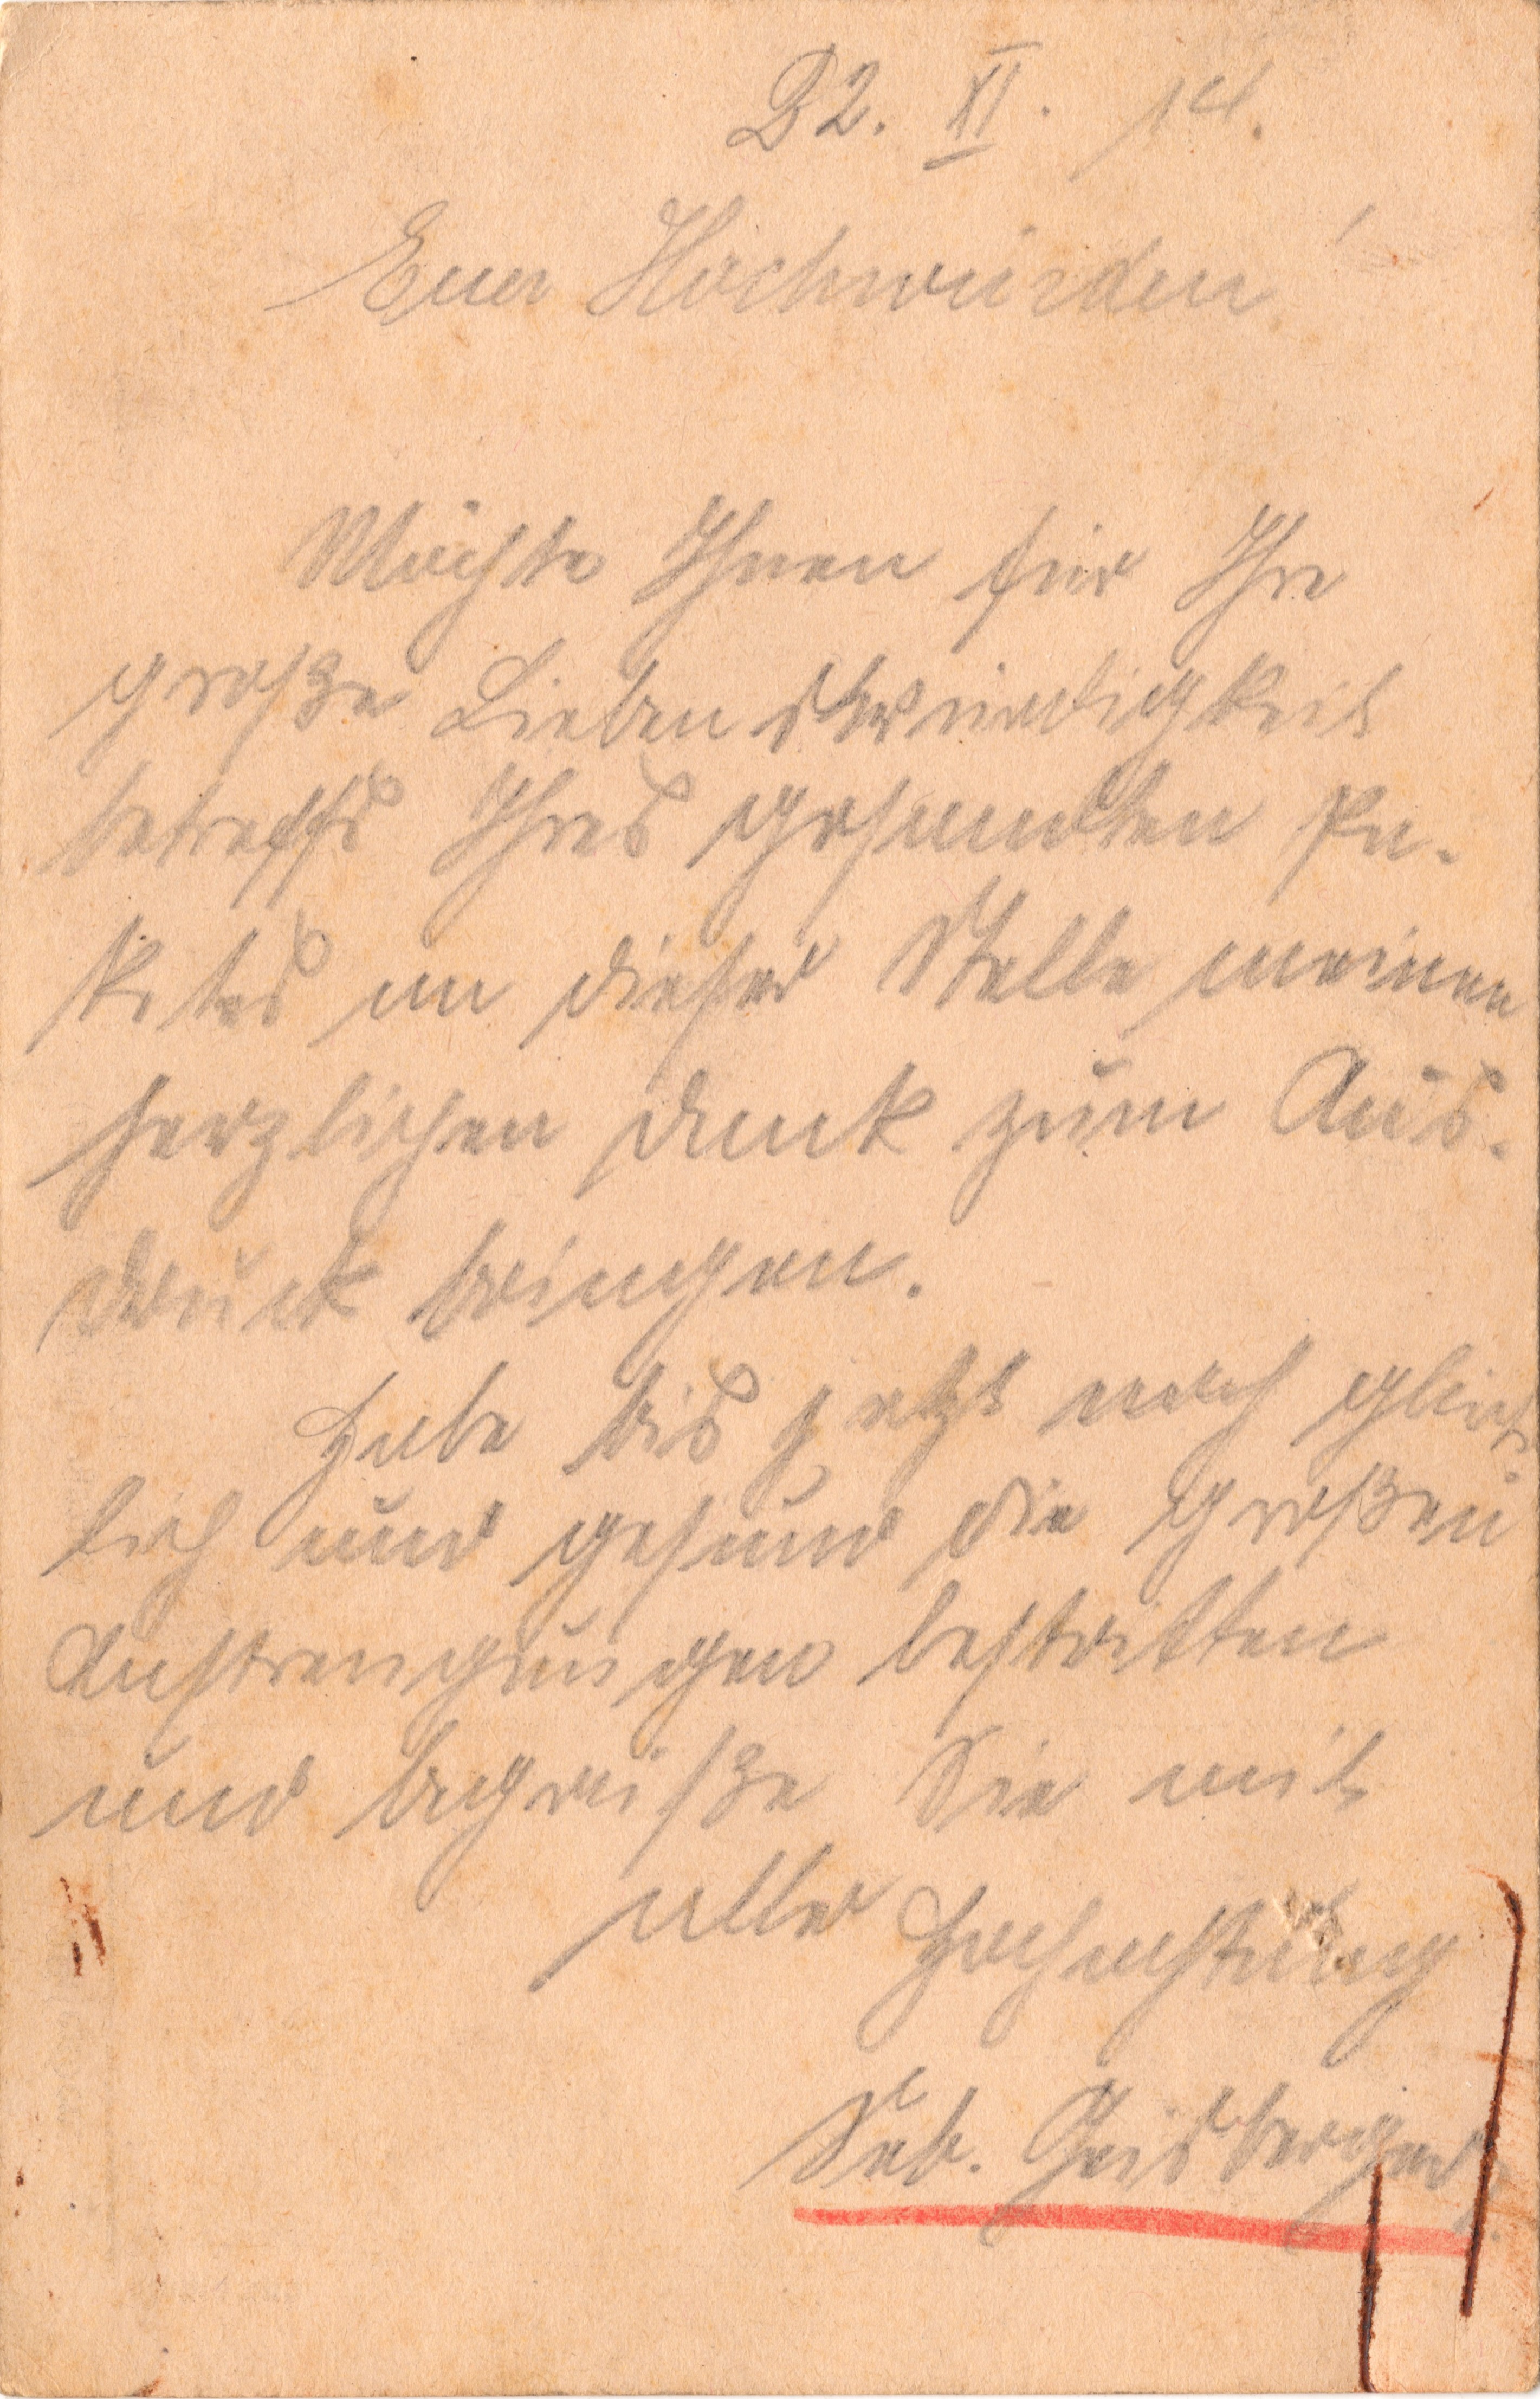 22. XI. 14.
Euer Hochwürden!
Möchte Ihnen für Ihre
große Liebenswürdigkeit
betreffs Ihres gesandten Pa-
ketes an dieser Stelle meinen
herzlichen Dank zum Aus-
druck bringen.
Habe bis jetzt noch glück
lich und gesund die großen
Anstrengungen bestritten
und begrüße Sie mit
aller Hochachtung
Seb. Geisberger.